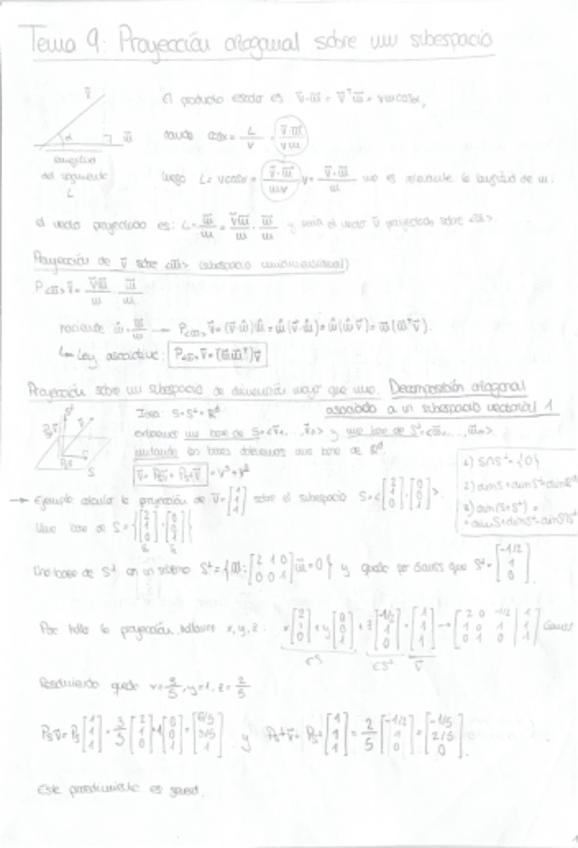 Tema 9: Proyección ortogonal sobre un subespacio
El producto escalar es v̄·w̄ = v̄ᵀw̄ = vwcosα,
v̄
α
w̄
longitud
del segmento
L
cosα = L/v = v̄·w̄/vw
luego L = vcosα = (v̄·w̄/wv)v = v̄·w̄/w no es relevante la longitud de w.
el vector proyectado es: L·w̄/w = v̄w̄/w · w̄/w y sería el vector v̄ proyectado sobre <w̄>
Proyección de v̄ sobre <w̄> (subespacio unidimensional)
P<w̄>v̄ = v̄w̄/w · w̄/w
haciendo ŵ = w̄/w → P<w̄>v̄ = (v̄·ŵ)ŵ = ŵ(v̄·ŵ) = ŵ(ŵ·v̄) = ŵ(ŵᵀv̄).
Ley asociativa: P<w̄>v̄ = (ŵŵᵀ)v̄
Proyección sobre un subespacio de dimensión mayor que uno. Descomposición ortogonal
asociada a un subespacio vectorial 1
Idea: S+S⊥=
una base de S=<v̄₁, ..., > y una base de S⊥=<w̄₁, ..., >
juntando las bases obtenemos una base de
v̄ = Psv̄ + Ps⊥v̄
1) S∩S⊥={0}
2) dimS+dimS⊥
3) dim(S+S⊥) =
= dimS+dimS⊥-dim
→ Ejemplo calcular la proyección de v̄=[1 1 1] sobre el subespacio S=<[2 1 0],[0 0 1]>.
Una base de S={[2 1 0],[0 0 1]}
Una base de S⊥ en un sistema S⊥={w̄:[2 1 0; 0 0 1]w̄=0} y queda por Gauss que S⊥=[-1/2 1 0]
Por tanto la proyección, hallamos x, y, z: x[2 1 0]+y[0 0 1]+z[-1/2 1 0]=[1 1 1] → [2 0 -1/2 | 1; 1 0 1 | 1; 0 1 0 | 1] Gauss
∈S ∈S⊥ v̄
Resolviendo queda x=3/5, y=1, z=2/5
Psv̄=Ps[1 1 1]=3/5[2 1 0]+1[0 0 1]=[6/5 3/5 1] y Ps⊥v̄=Ps⊥[1 1 1]=2/5[-1/2 1 0]=[-1/5 2/5 0].
Este procedimiento es general.
1